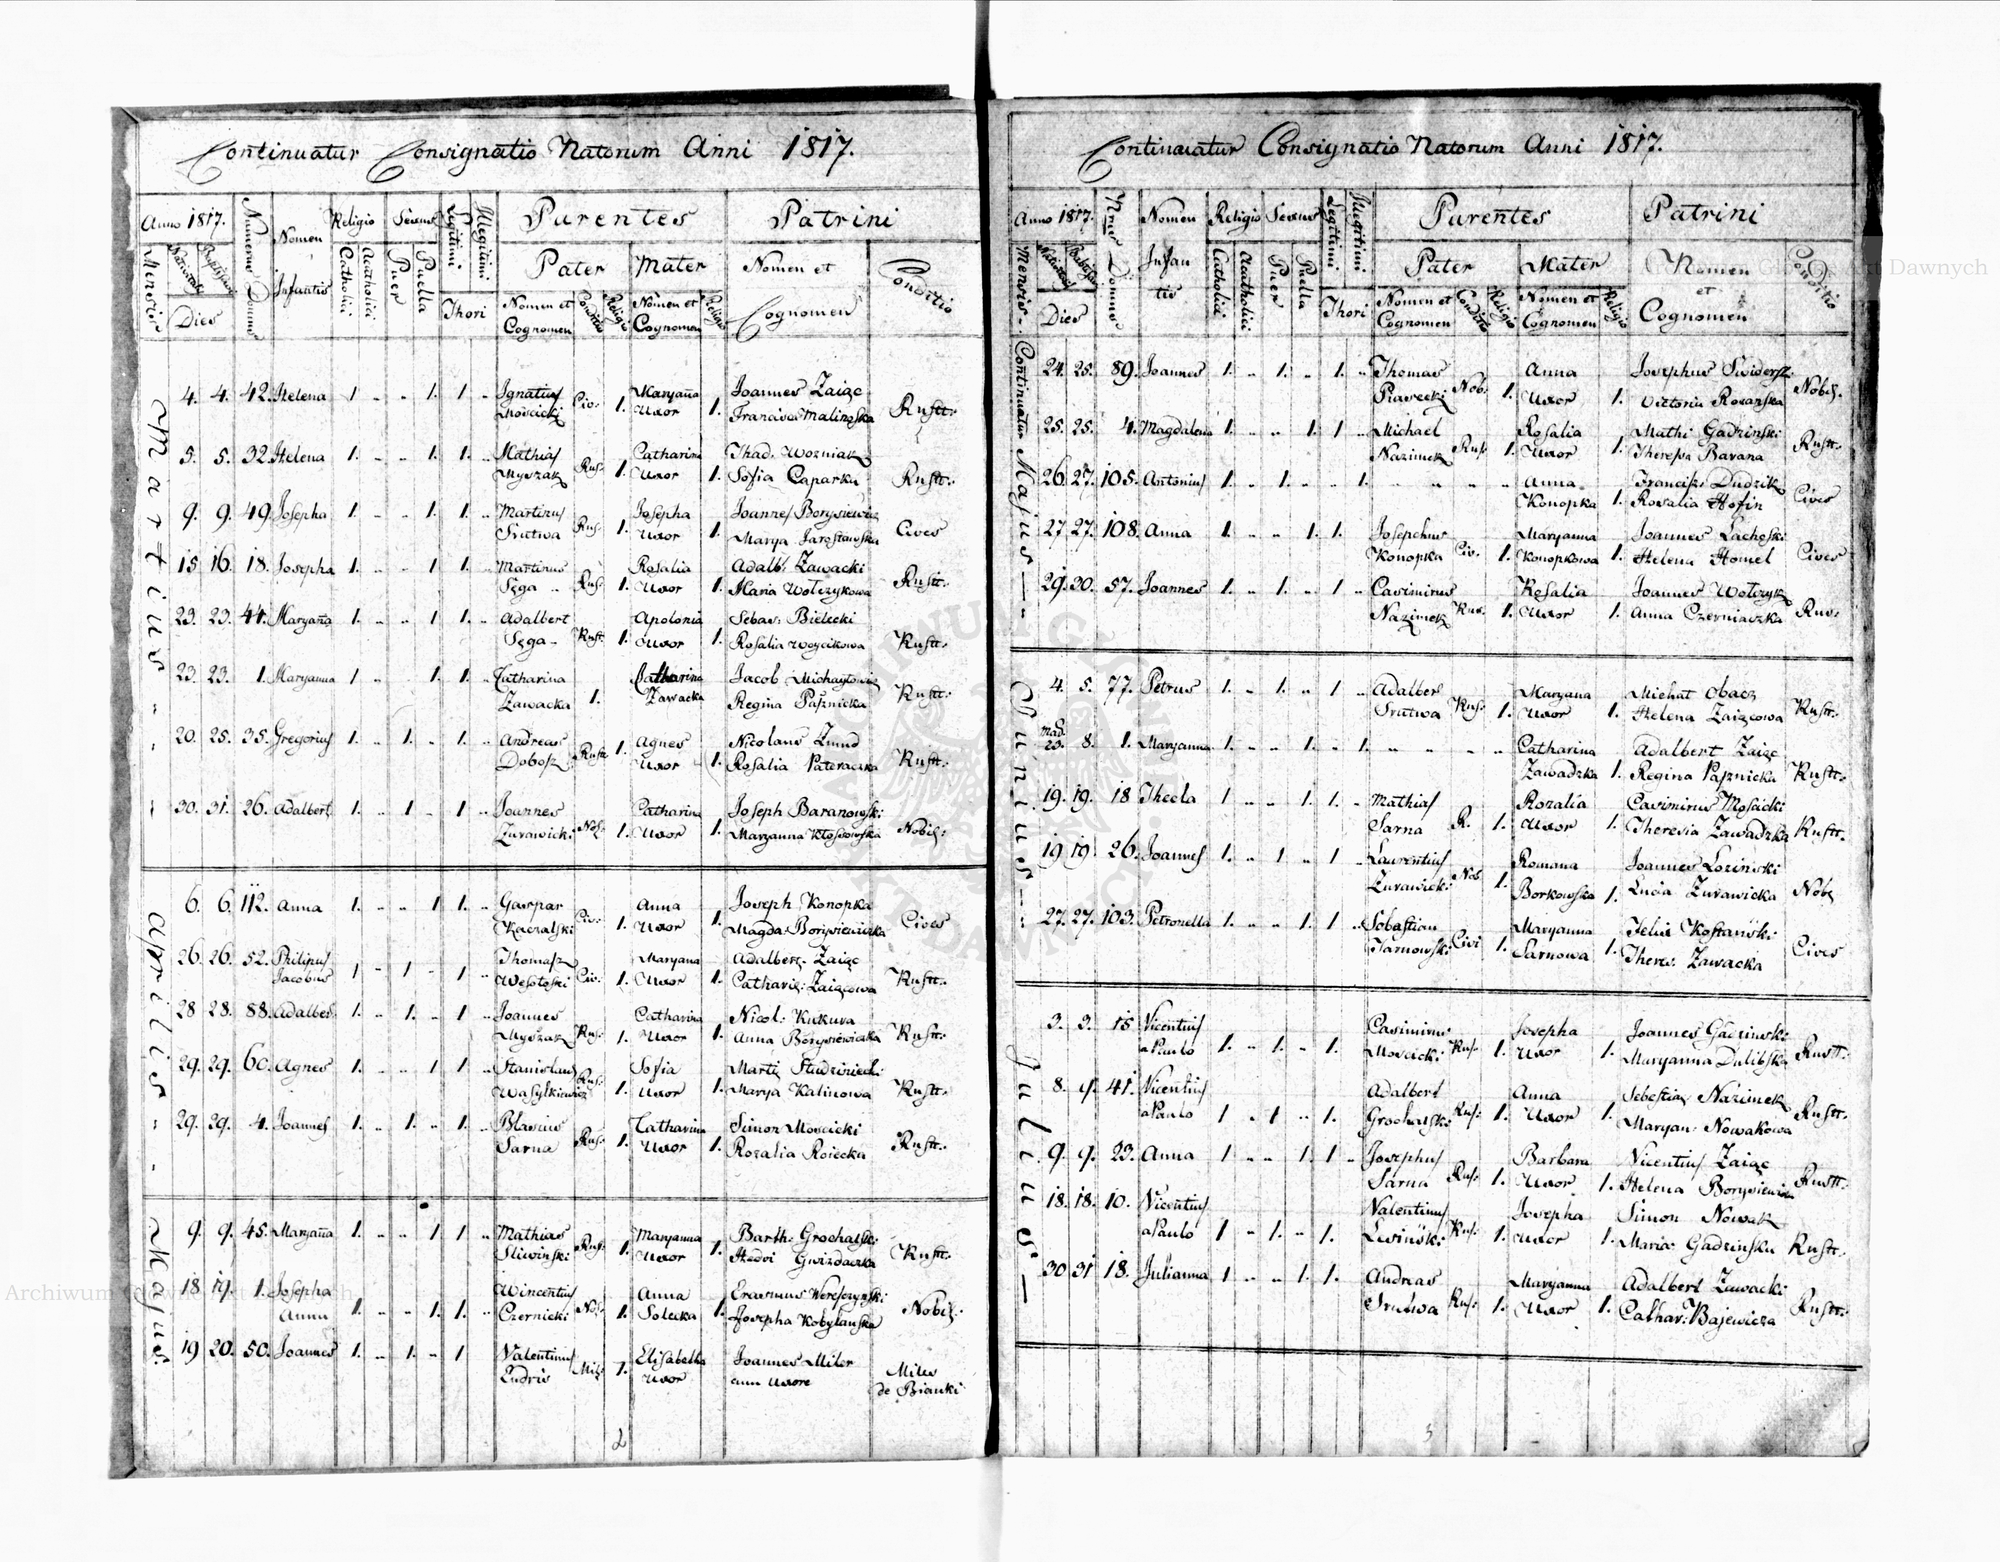 Continuatur Consignatio Natorum Anni 1817.
Anno 1817. Numerus Domus Nomen Infantis Religio Sexus Legitimi Illegitimi Parentes Patrini
Mensis Dies Catholici Acatholici Puer Puella Thori Pater Mater Nomen et Cognomen Conditio
Nomen et Cognomen Conditio Religio Nomen et Cognomen Religio
Martius
4. 4. 42. Helena 1 .. .. 1. 1 Ignatius Maryaña Joannes Zaiąc
Mościcki Civ: 1. Uxor 1. Francisca Malinoska Rustt:
5. 5. 32. Helena 1. .. .. 1. 1. .. Mathias Catharina Thad. Wozniak
Myszak Rus: 1. Uxor 1. Sofia Caparka Rustt:
9. 9. 49. Josepha 1. .. .. 1. 1. .. Martinus Josepha Joannes Borysiewicz
Srutwa Rus: 1. Uxor 1. Marya Jarosławska Cives
15 16. 18. Josepha 1. .. .. 1 1. .. Martinus Rosalia Adalb: Zawacki
Sęga .. Rus: 1. Uxor 1. Maria Wołczykowa Rustt:
23. 23. 44. Maryaña 1. .. .. 1 1. .. Adalbert Apolonia Sebas: Bielecki
Sęga - Rust: 1. Uxor 1. Rosalia Woycikowa Rustt:
23. 23. 1. Maryanna 1 .. .. 1. 1. .. Catharina Catharina Jacob Michayłowicz
Zawacka 1. Zawacka Regina Pasznicka Rustt:
20. 25. 35. Gregorius 1 .. 1. .. 1. .. Andreas Agnes Nicolaus Zmud
Dobosz Rustt: 1. Uxor 1. Rosalia Pateraczka Rustt:
30. 31. 26. Adalbert 1. .. 1. .. 1 .. Joannes Catharina Joseph Baranowski
Zurawicki Nob: 1. Uxor 1. Maryanna Kłossowska Nobil:
Aprilis
6. 6. 112. Anna 1. .. .. 1 1. .. Gaspar Anna Joseph Konopka
Kaczalski Civ: 1. Uxor 1. Magda: Borysiewiczka Cives
26. 26. 52. Philipus Thomasz Maryana Adalbert Zaiąc
Jacobus 1 .. 1 .. 1 Wesołoski Civ: 1. Uxor 1. Cathari: Zaiącowa Rustt:
28 28. 88. Adalber. 1. .. 1. .. 1 Joannes Catharina Nicol: Kukura
Myszak Rus: 1. Uxor 1. Anna Borysiewiczka Rustt:
29. 29. 60. Agnes 1. .. .. 1 1. Stanislaus Sofia Marti Studziniecki
Wasylkiewicz Rus: 1. Uxor 1. Marya Kalinowa Rustt:
29. 29. 4. Joannes 1. .. 1. .. 1. Blasius Catharina Simon Moscicki
Sarna Rus: 1. Uxor 1. Rozalia Roiecka Rustt:
Majus.
9. 9. 45. Maryaña 1. .. .. 1 1. Mathias Maryanna Barth: Grochalski
Sliwinski Rus: 1. Uxor 1. Hedvi Gwizdaczka Rustt:
18 19. 1. Josepha Wincentius Anna Erasmus Wereszynski
Anna 1. .. .. 1. 1. Czernicki Nob: 1. Solecka 1. Josepha Kobylanska Nobil:
19 20. 50. Joannes 1. .. 1. .. 1 Valentinus Elisabetha Joannes Miler
Ludris Mil: 1. Uxor cum Uxore Miles
de Bianki
2
Continuatur Consignatio Natorum Anni 1817.
Anno 1817. Nrus Domus Nomen Infantis Religio Sexus Legitimi Illegitimi Parentes Patrini
Mensis Dies Catholici Acatholici Puer Puella Thori Pater Mater Nomen et Cognomen Conditio
Nomen et Cognomen Conditio Religio Nomen et Cognomen Religio
Continuatur Majus
24. 25. 89. Joannes 1. .. 1. .. 1. .. Thomas Anna Josephus Swidersz.
Piasecki Nob: 1. Uxor 1. Victoria Rozanska Nobil.
25. 25. 4. Magdalena 1. .. .. 1. 1 .. Michael Rosalia Mathi Gadzinski
Nazimek Rus: 1. Uxor 1. Theresa Barana Rustt:
26. 27. 105. Antonius 1. .. 1. .. 1. .. .. .. Anna Francisz: Dudzik
Konopka 1. Rosalia Hofin Cives
27 27. 108. Anna 1. .. .. 1. 1. Josephus Maryanna Joannes Lachoski
Konopka Civ. 1. Konopkowa 1. Helena Homel Cives
29. 30. 57. Joannes 1. .. 1. .. 1 .. Casimirus Rosalia Joannes Wołczyk
Nazimek Rus. 1. Uxor 1. Anna Czerniaczka Rus:
Junius
4. 5. 77. Petrus 1. .. 1. .. 1 .. Adalber Maryana Michał Obacz
Srutwa Rus: 1. Uxor 1. Helena Zaiącowa Rustt:
23. 8. 1. Maryanna 1. .. .. 1. .. 1. .. .. Catharina Adalbert Zaiąc
Zawadzka 1. Regina Paznicka Rustt:
19. 19. 18 Thecla 1 .. .. 1. 1. .. Mathias Rozalia Casimirus Moscicki
Sarna R. 1. Uxor 1. Theresia Zawadzka Rustt:
19 19. 26. Joannes 1. .. 1 .. 1 .. Laurentius Romana Joannes Lozinski
Zurawicki Nob. 1. Borkowska 1. Lucia Zurawicka Nobi
27. 27. 103. Petronella 1. .. .. 1. 1 .. Sebastian Maryanna Felix Kostański
Tarnowski Civi 1. Sarnowa 1. Theres. Zawacka Cives
Julius
3. 3. 15 Vicentius Casimirus Josepha Joannes Gadzinski
a Paulo 1. .. 1. .. 1. Moscicki Rus: 1. Uxor 1. Maryanna Dulibska Rustt:
8. 9. 41. Vicentius Adalbert Anna Sebestian Nazimek
a Paulo 1 .. 1 .. 1. Grochalski Rus: 1. Uxor 1. Maryan: Nowakowa Rustt:
9. 9. 23. Anna 1 .. .. 1. 1 .. Josephus Barbara Vicentius Zaiąc
Sarna Rus: 1. Uxor 1. Helena Borysiewicz Rustt:
18. 18. 10. Vicentius Valentinus Josepha Simon Nowak
a Paulo 1 .. 1. .. 1. Lwiński Rus: 1. Uxor 1. Maria Gadzinska Rustt:
30 31 18. Julianna 1 .. .. 1. 1. Andreas Maryanna Adalbert Zawacki
Srutwa Rus: 1. Uxor 1. Cathar: Bajewicza Rustt:
3
Archiwum Główne Akt Dawnych